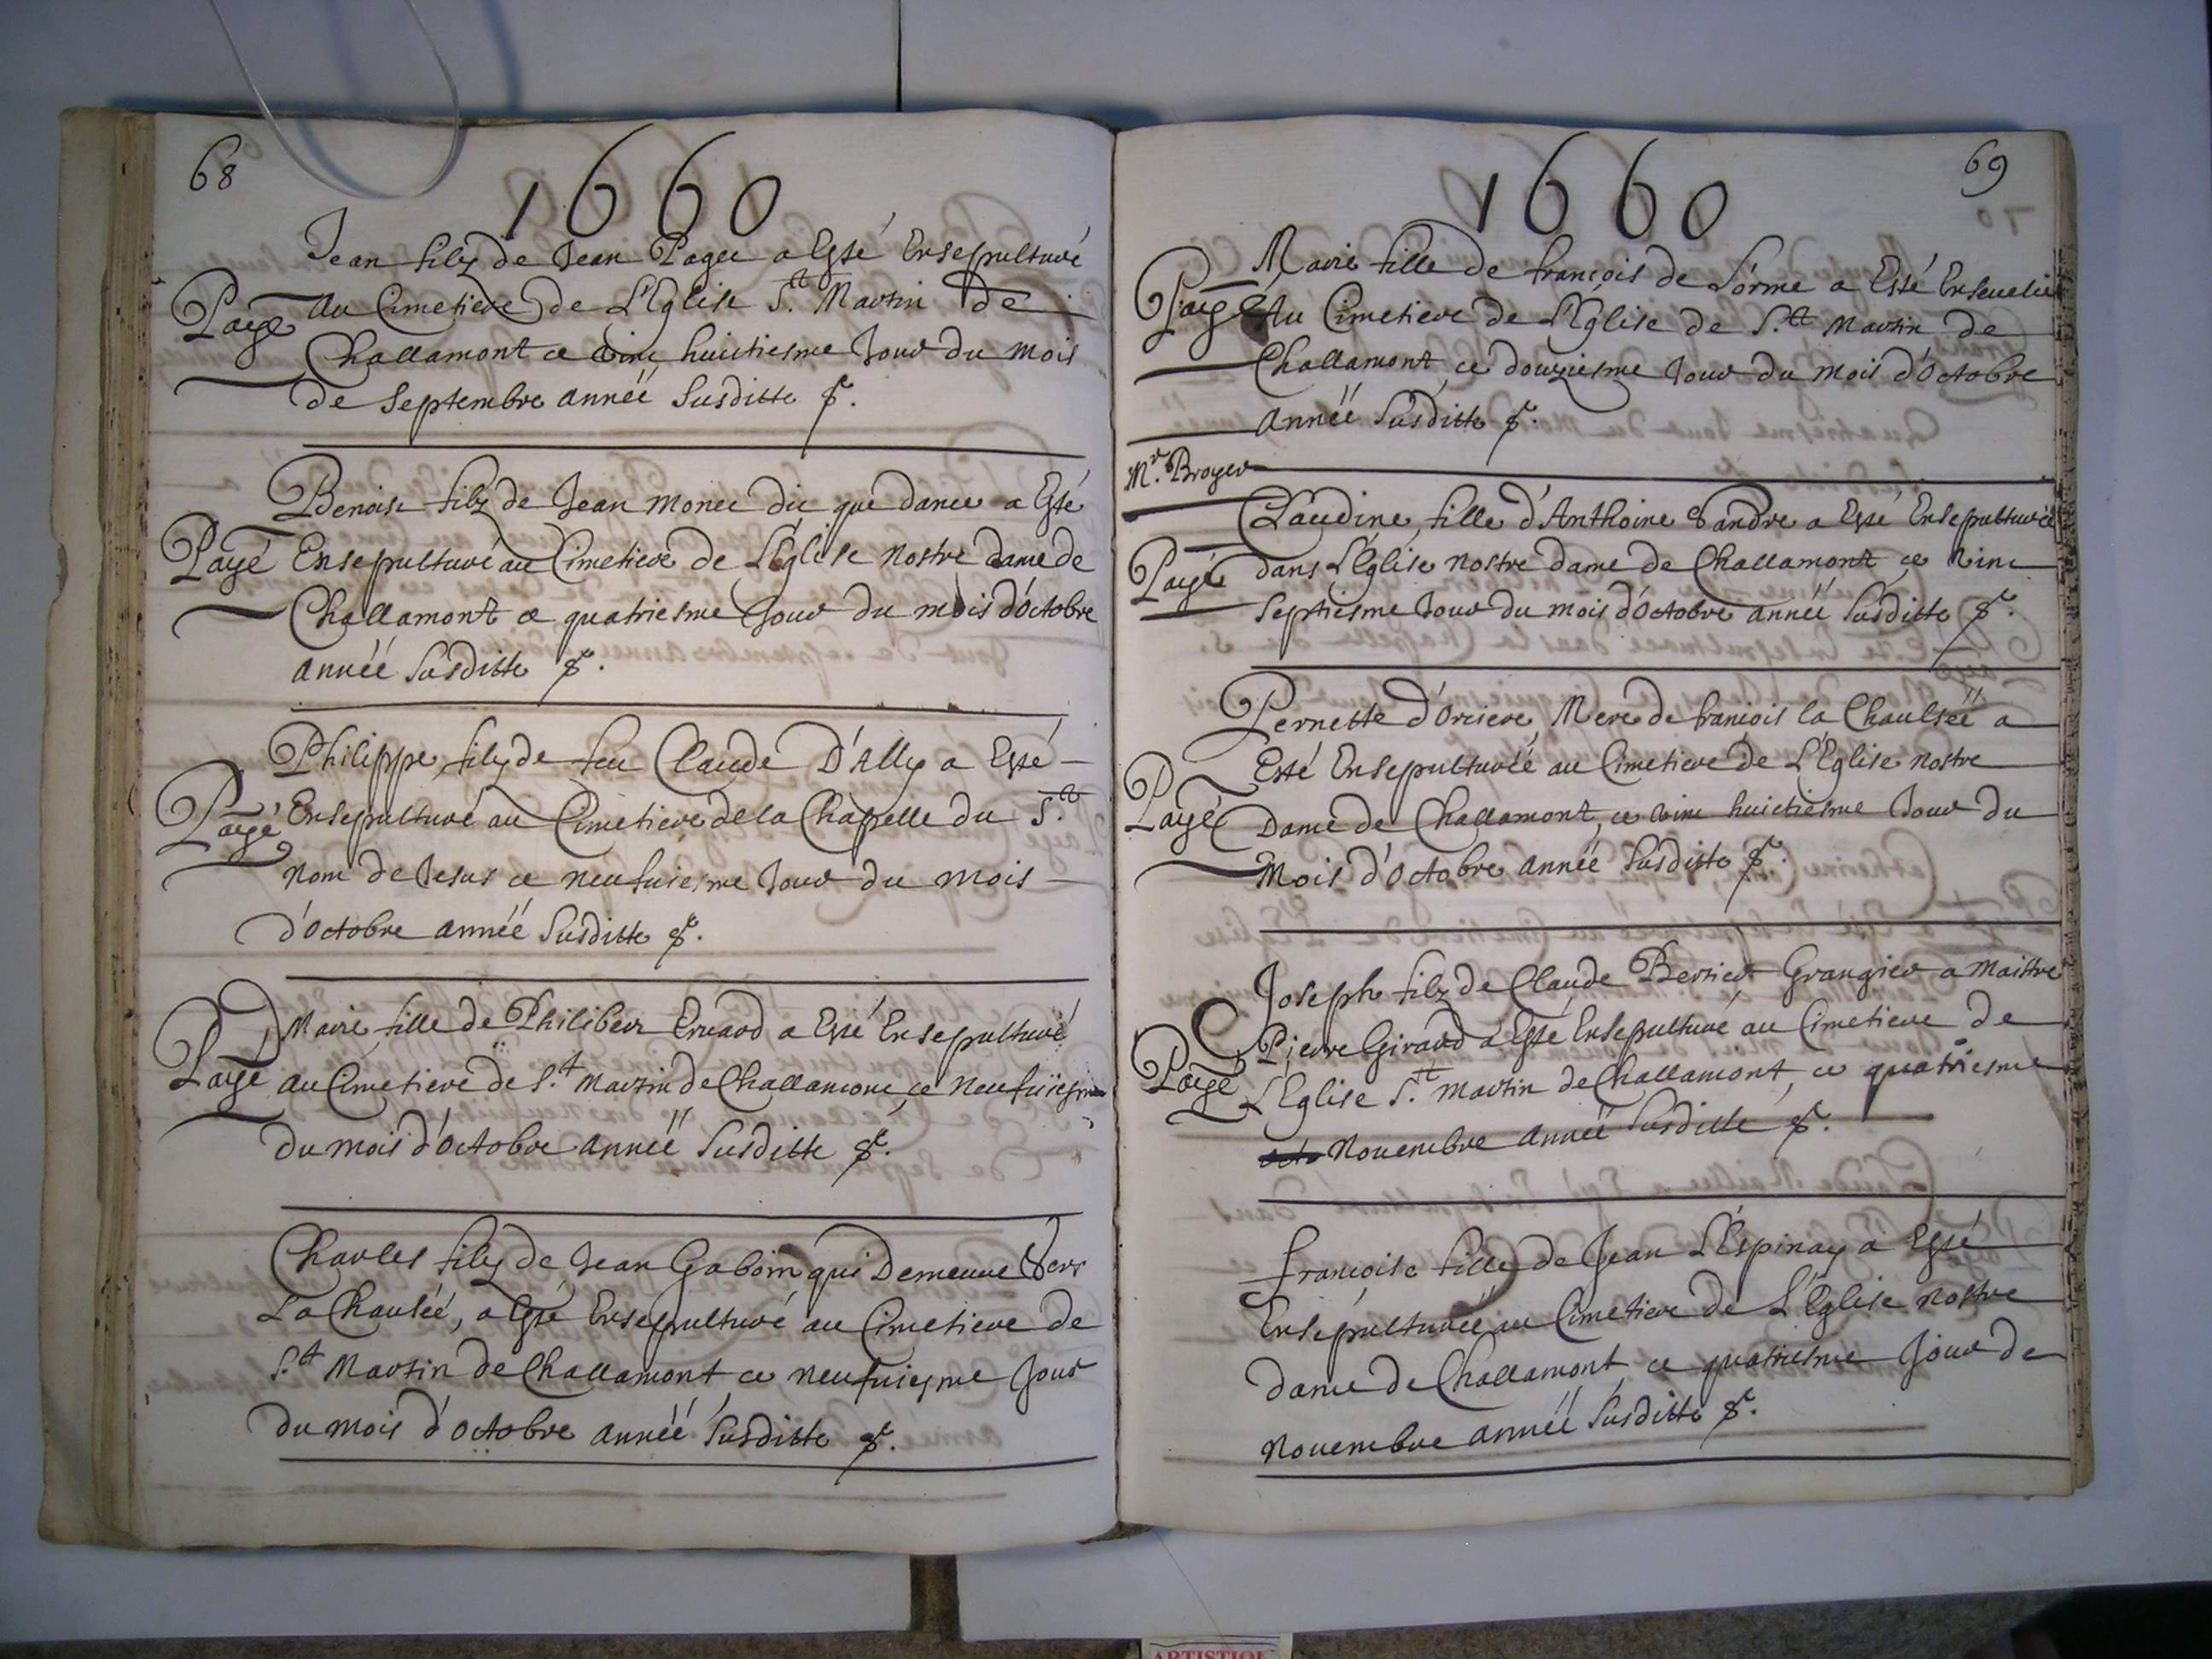 68
1660
Jean filz de Jean Pagee a Esté Ensepulturé
Payé au Cimetiere de L'Eglise S.t Martin de
Challamont ce vint huictiesme Jour du mois
de Septembre année Susditte &.
Benoist filz de Jean Monee dit que dance a Esté
Payé Ensepulturé au Cimetiere de L'Eglise nostre dame de
Challamont ce quatriesme Jour du mois d'octobre
année Susditte &.
Philippe filz de feu Claude D'Ally a Esté
Payé Ensepulturé au Cimetiere de la Chapelle du S.t
Nom de Jesus ce neufuiesme Jour du mois
d'octobre année Susditte &.
Marie fille de Philibert Eruard a Esté Ensepulturé
Payé au Cimetiere de S.t Martin de Challamont, ce neufuiesme
du mois d'octobre année Susditte &.
Charles filz de Jean Gaboin qui Demeure Vers
La Chausée, a Esté Ensepulturé au Cimetiere de
S.t Martin de Challamont ce neufuiesme Jour
du mois d'octobre année Susditte &.
69
1660
Marie fille de françois de Lorme a Esté Enseuelie
Payé Au Cimetiere de L'Eglise de S.t Martin de
Challamont ce douziesme Jour du mois d'octobre
année Susditte &.
M.r Broyer
Claudine, fille d'Anthoine Vandre a Esté Ensepulturée
Payé dans L'Eglise nostre dame de Challamont ce vint
Septiesme Jour du mois d'octobre année Susditte &.
Pernette d'Orciere, Mere de françois la Chaulsée a
Esté Ensepulturée au Cimetiere de L'Eglise nostre
Payé Dame de Challamont, ce vint huictiesme Jour du
Mois d'octobre année Susditte &.
Joseph filz de Claude Bernier Grangier a Maistre
Pierre Girard a Esté Ensepulturé au Cimetiere de
Payé L'Eglise S.t Martin de Challamont, ce quatriesme
octo Nouembre année Susditte &.
françoise fille de Jean L'Espinay a Esté
Ensepulturée au Cimetiere de L'Eglise nostre
dame de Challamont, ce quatriesme Jour de
Nouembre année Susditte &.